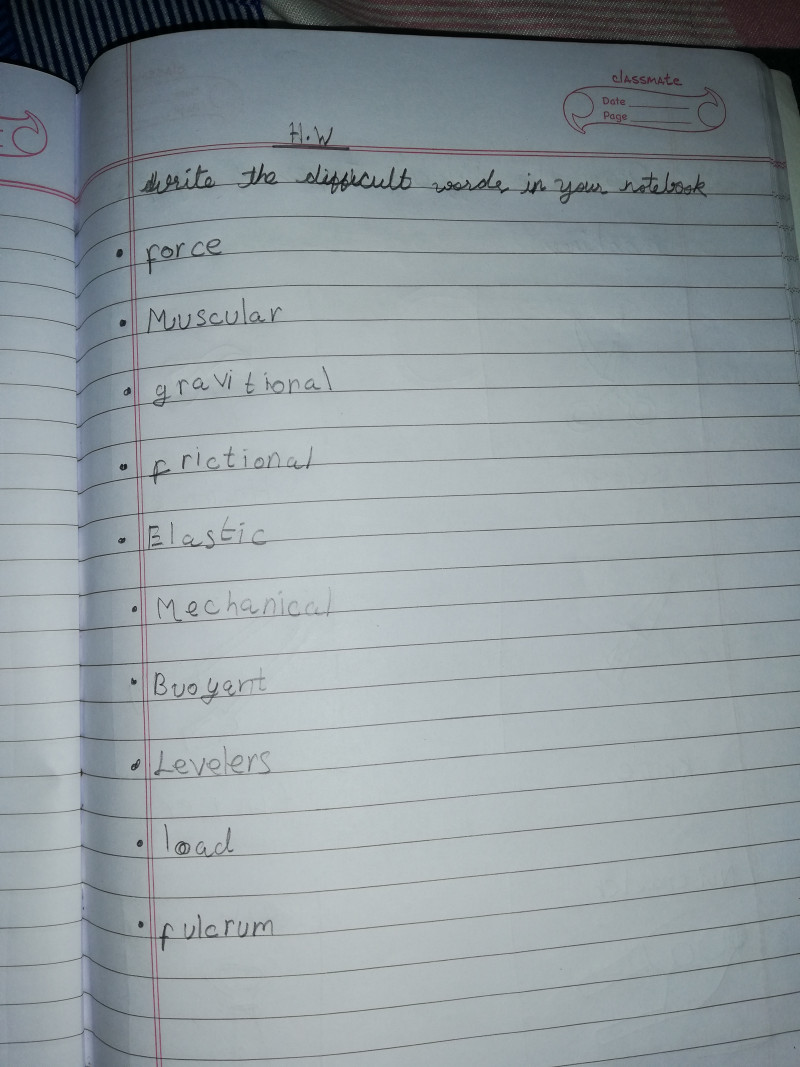 classmate
Date
Page
H.W
Write the difficult words in your notebook
• force
• Muscular
• gravitional
• frictional
• Elastic
• Mechanical
• Buoyant
• Levelers
• load
• fulcrum